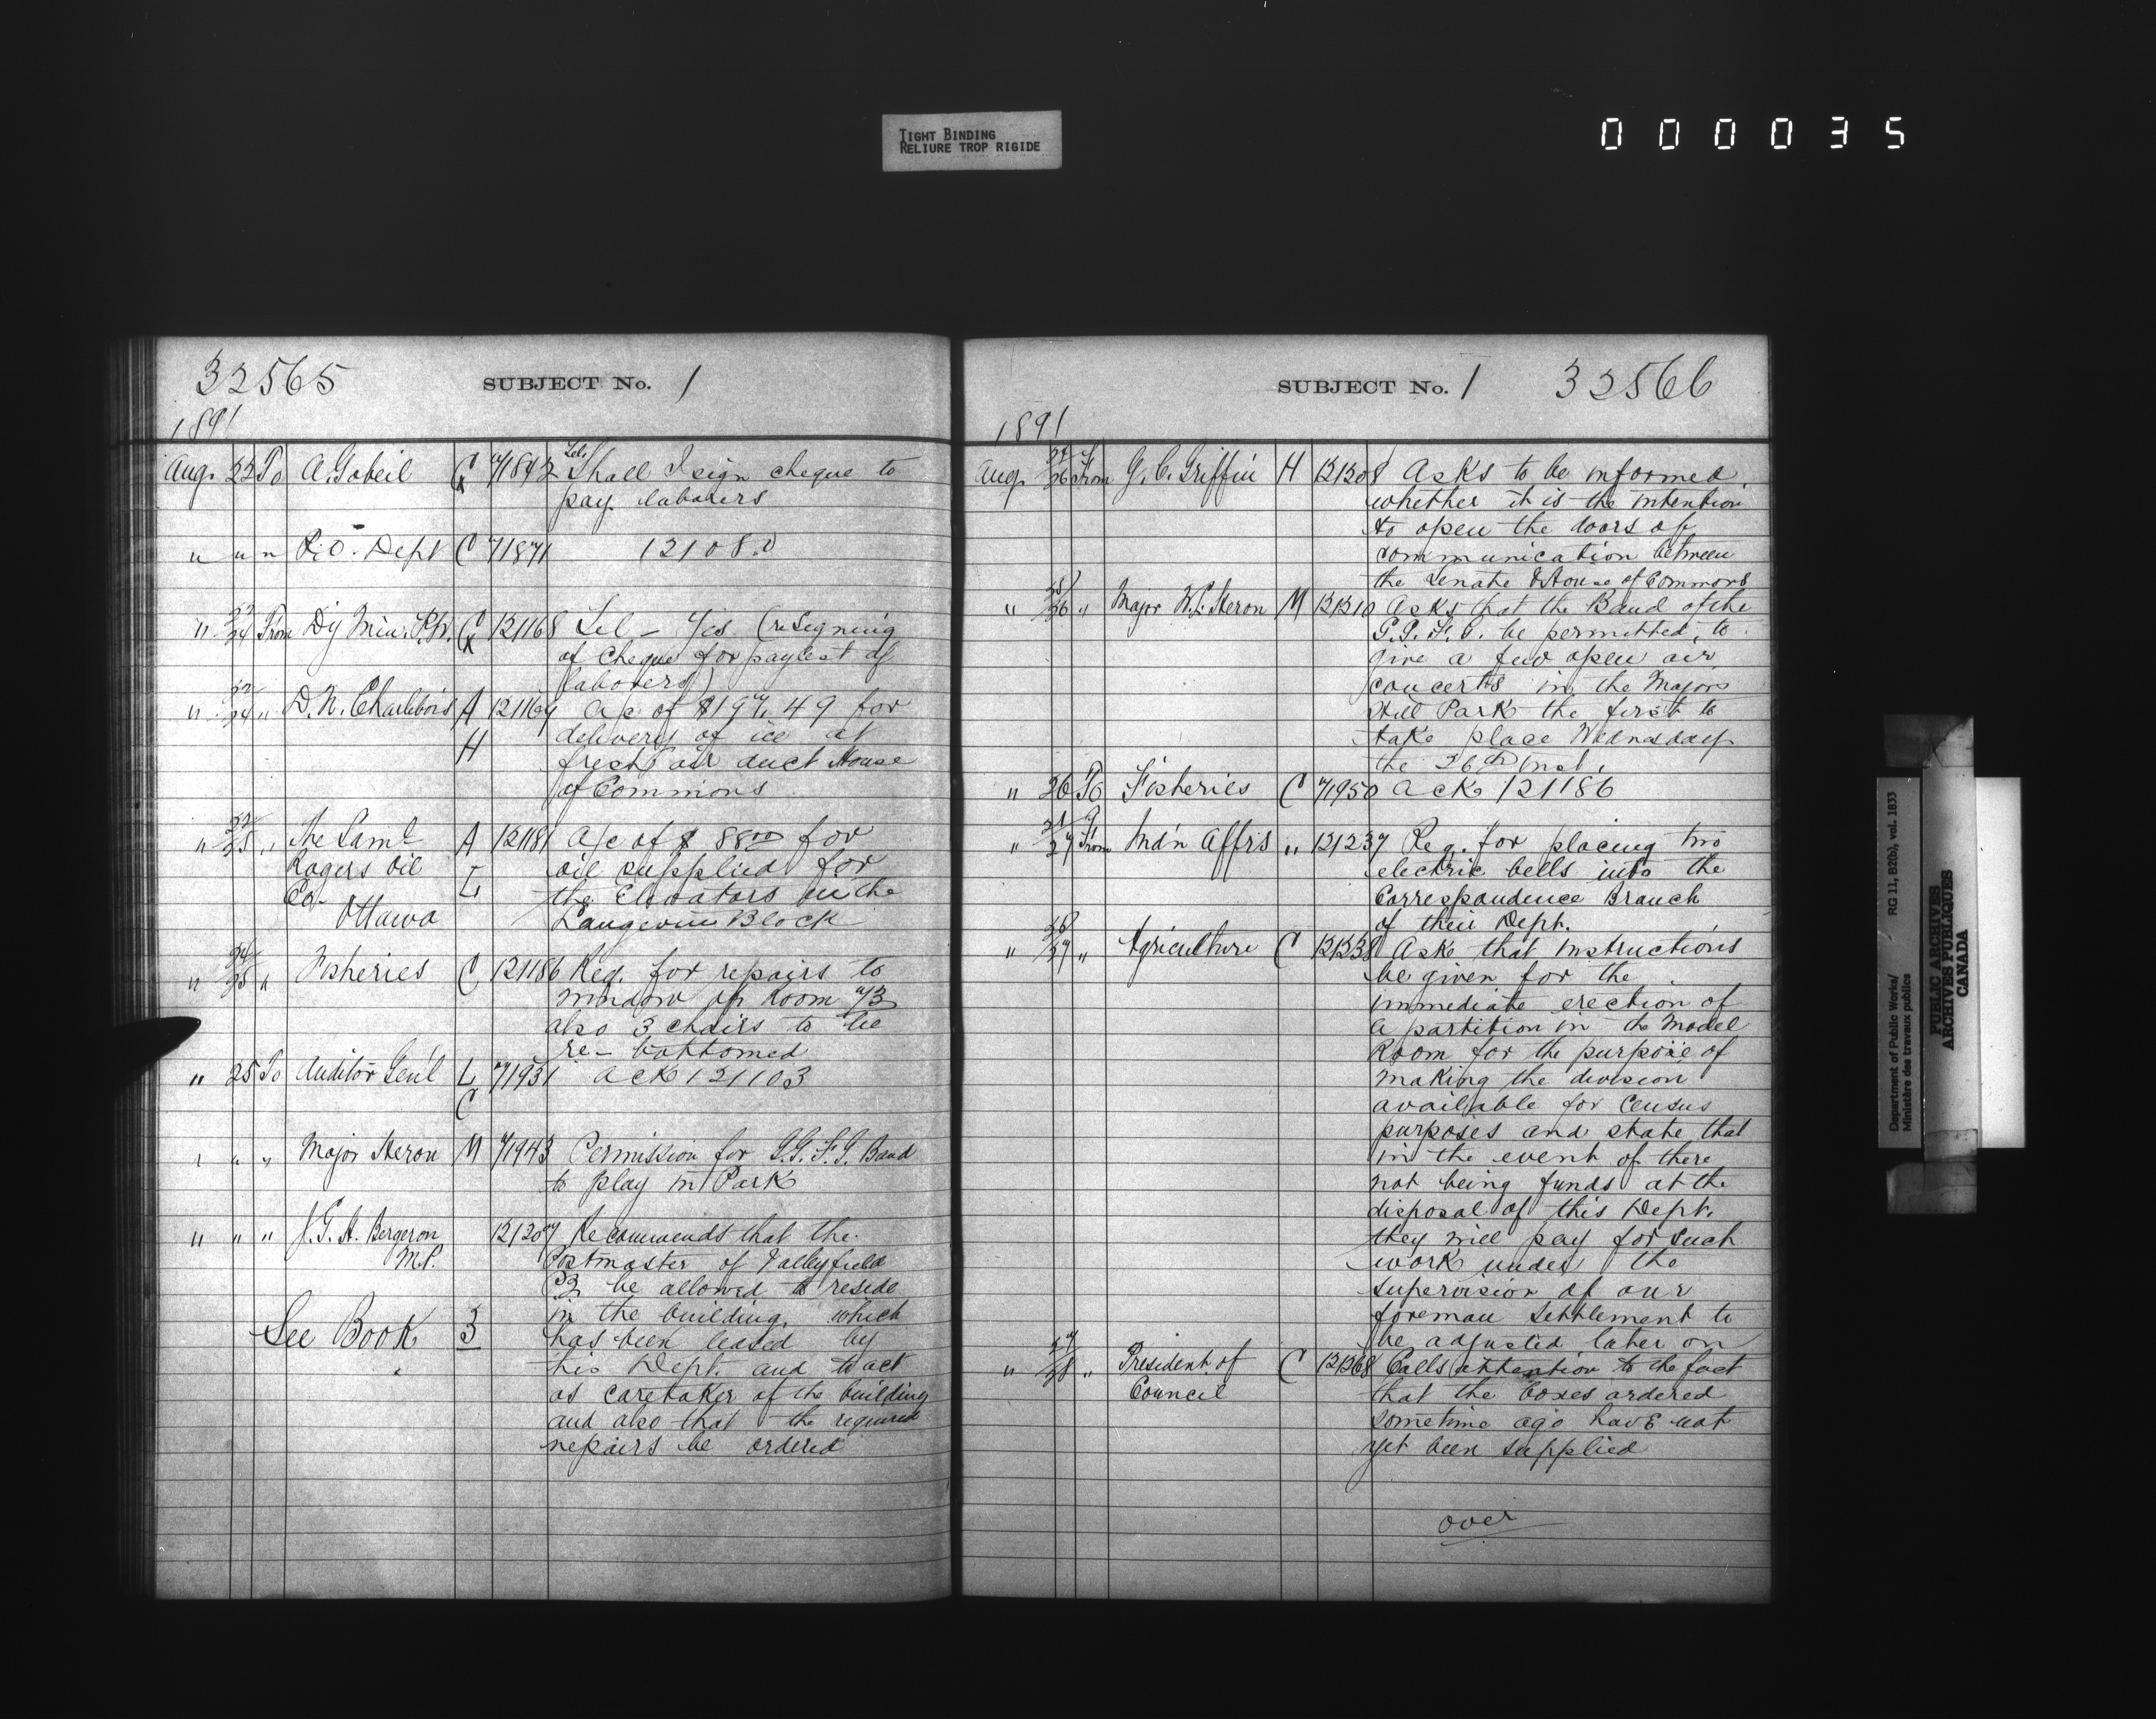 TIGHT BINDING
RELIURE TROP RIGIDE
000035
32565 SUBJECT No. 1
1891
Aug. 22 To A. Gobeil G 71842 Tel. Shall I sign cheque to
pay laborers
" " " P.O. Dept C 71871 121080
" 22/24 From Dy Min. P.W. G 121168 Tel - Yes (re signing
of cheque for paylist of
laborers)
" 22/24 " D. N. Charlebois A 121169 a/c of $197.49 for
H delivery of ice at
fresh air duct House
of Commons
" 22/25 " The Saml A 121181 A/c of $ 88.00 for
Rogers Oil oil supplied for
Co. L the Elevators in the
Ottawa Langevin Block
" 24/25 " Fisheries C 121186 Req. for repairs to
window of Room 73
also 3 chairs to be
re-bottomed
" 25 To Auditor Gen'l L 71931 ack 121103
C
" " " Major Heron M 71943 Permission for G.G.F.G. Band
to play in Park
" " " J.G.H. Bergeron 121207 Recommends that the
M.P. Postmaster of Valleyfield
be allowed to reside
in the building, which
See Book 3 has been leased by
his Dept. and to act
as caretaker of the building
and also that the required
repairs be ordered
SUBJECT No. 1 32566
1891
Aug. 24/26 From G. C. Griffin H 121208 Asks to be informed
whether it is the intention
to open the doors of
communication between
the Senate & House of Commons
" 25/26 " Major W. Heron M 121210 Asks that the Band of the
G.G.F.G. be permitted to
give a few open air
concerts in the Majors
Hill Park the first to
take place Wednesday
the 26th Inst.
" 26 To Fisheries C 71950 ack 121186
" 21/27 From Ind'n Affrs " 121237 Req. for placing two
electric bells into the
Correspondence Branch
of their Dept.
" 26/27 " Agriculture C 121238 Ask that instructions
be given for the
immediate erection of
a partition in the Model
Room for the purpose of
making the division
available for Census
purposes and state that
in the event of there
not being funds at the
disposal of this Dept.
they will pay for such
work under the
supervision of our
foreman settlement to
be adjusted later on
" 27/28 " President of C 121268 Calls attention to the fact
Council that the boxes ordered
sometime ago have not
yet been supplied
over
Department of Public Works/ RG 11, B2(b), vol. 1833
Ministère des travaux publics
PUBLIC ARCHIVES
ARCHIVES PUBLIQUES
CANADA